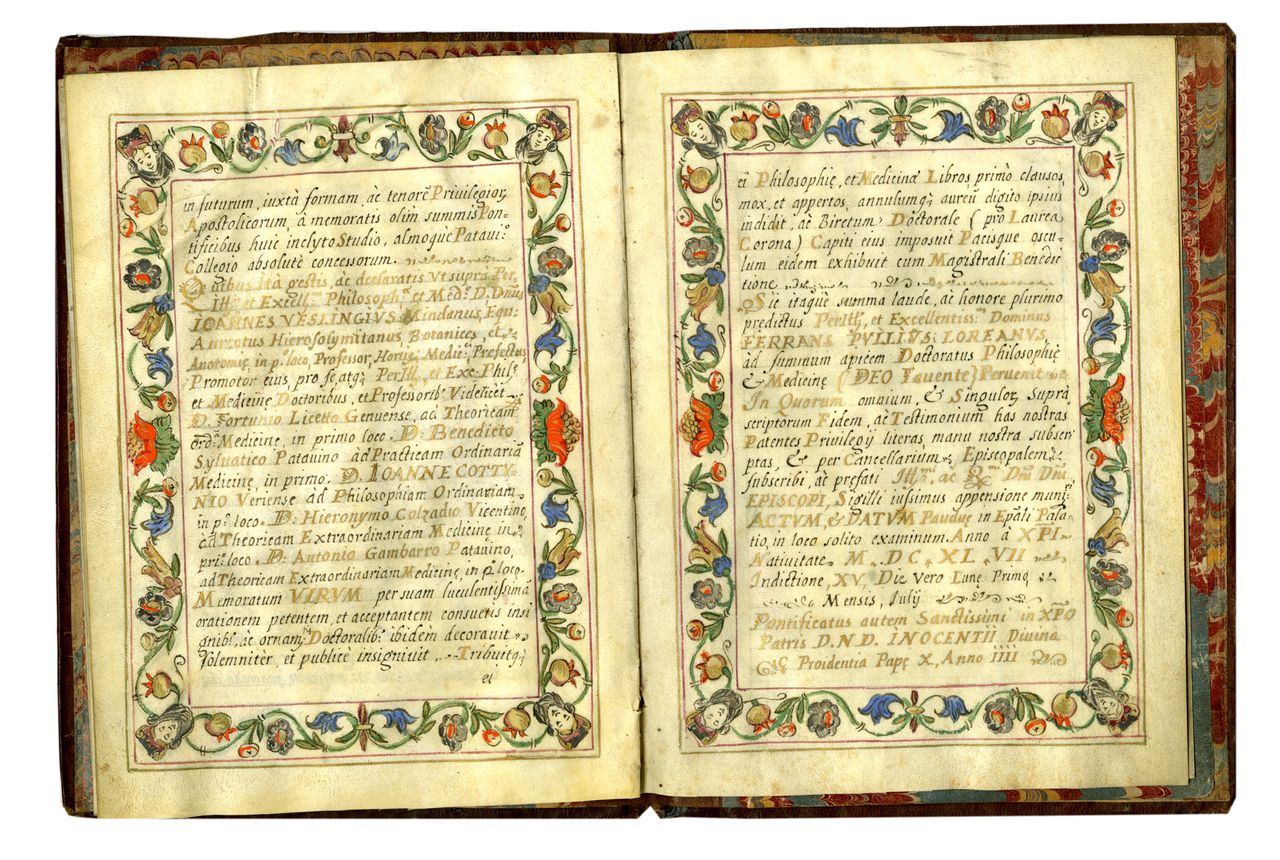 in futurum, iuxtà formam, àc tenorẽ Privilegior,
Apostolicorum, à memoratis olim summis Pon-
tificibus huic inclyto Studio, almoque Patavi:º
Collegio absolutè concessorum.
Quibus Ità gestis, àc declaratis Vt supra Per
Ill:ᵉ et Excell:ᵐˢ Philosoph:ˢ et Med:ˢ D. Dñus
IOANNES VESLINGIVS Mindanus Equ:
Auratus Hierosolymitanus, Botanices, et
Anotomię in p:º loco, Professor, Horti Medic: Prefectus,
Promotor eius, pro se atq; Per Ill: et Exc: Phil:
et Medicinę Doctoribus, et Professorib: Videlicèt
D. Fortunio Liceto Genuense, ad Theoricam
ord:ᵃ Medicinę, in primo loco. D: Benedicto
Syluatico Patavino ad Practicam Ordinariã
Medicinę, in primo. D. IOANNE COTTV-
NIO Veriense ad Philosophiam Ordinariam
in p:º loco. D: Hieronymo Colzadio Vicentino
ad Theoricam Extraordinariam Medicinę in
pri:º loco. D: Antonio Gambarro Patavino,
ad Theoricam Extraordinariam Medicinę, in p:º loco.
Memoratum VIRVM per suam luculentissimã
orationem petentem, et acceptantem consuetis insi
gnib:, àc ornam: Doctoralib: ibidem decorauit
solemnitèr, et publicè insigniuit. Tribuitq;
ei
ei Philosophię, et Medicinæ Libros, primò clausos,
mox, et appertos, annulumq; aureũ digito ipsius
indidit, àc Biretum Doctorale (pro Laurea
Corona) Capiti eius imposuit Pacisque oscu-
lum eidem exhibuit cum Magistrali Benedic
tione.
Sic itaquè summa laude, àc honore plurimo
predictus Per Ill:, et Excellentiss: Dominus
FERRANS PVLLIVS: LOREANVS,
àd summum apicem Doctoratus Philosophię
& Medicinę (DEO Fauente) Peruenit
In Quorum omnium, & Singulor, supra
scriptorum Fidem, àc Testimonium has nostras
Patentes Privilegij literas, manu nostra subscri
ptas, & per Cancellarium Episcopalem
subscribi, àc prefati Ill:ᵐⁱ, àc R:ᵐⁱ Dñi Dñi
EPISCOPI, Sigilli iussimus appensione muni:
ACTVM, & DATVM Paduę in Epãli Pala-
tio, in loco solito examinum. Anno à XPI
Nativitate M. DC. XL. VII
Indictione, XV, Die Vero Lunę Primo,
Mensis, Julij
Pontificatus autem Sanctissimi in XPO
Patris D. N. D. INOCENTII Divina
Providentia Papę X, Anno IIII